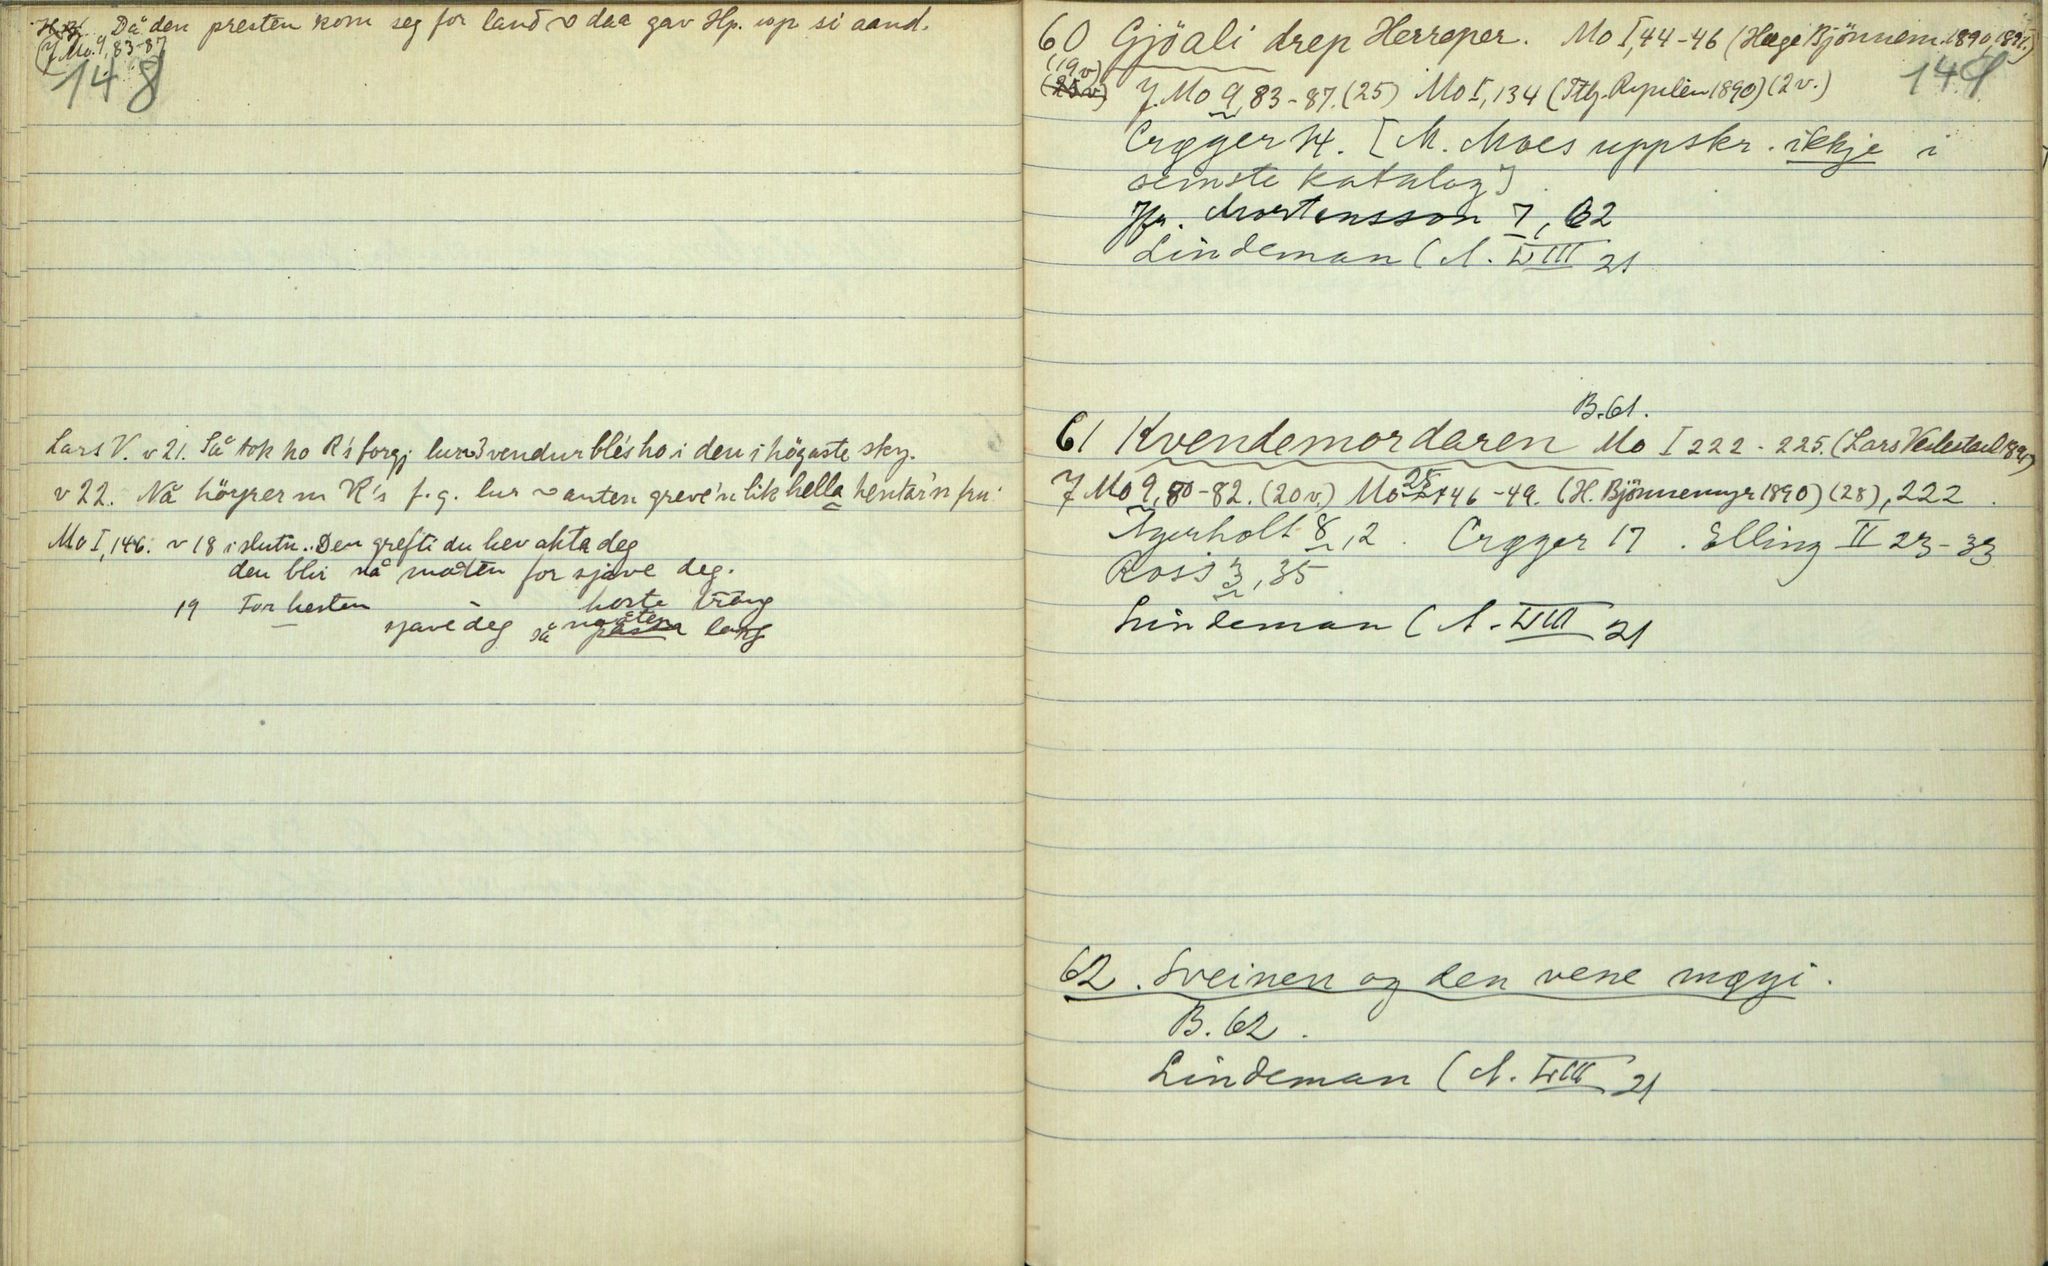 H.Bj. Då den presten kom seg for land ~ daa gav Hp. upp si aand.
(J. Mo. 9, 83-87
148
Lars V. v 21. Så tok ho R's forgj lur 3 vendur blés ho i den i högaste sky.
v 22. Nå höyrer m R's f. g. lur ~ anten greve'n lik hella hentar'n fru
Mo I, 146. v 18 i slutn.. Den grefti du hev akta deg
den blir nå maten for sjave deg.
19 For hesten hoste trång
sjave deg så passa lang
60 Gjöali drep Herreper. Mo I, 44-46 (Hæge Bjönnem. 1890, 1891.)
149
(19 v)
(25 v) J. Mo 9, 83-87. (25) Mo I, 134 (Ttbj. Ripilen 1890) (2 v.)
Crøger 14. [M. Moes uppskr. ikkje i
semste katalog]
Jfr. Mortensson 7, 62
Lindeman (A. LVIII 21
B. 61.
61 Kvendemordaren Mo I 222 - 225. (Lars Veslestaul 1891)
J Mo 9, 80-82. (20 v) Mo 25 146-49. (H. Bjönnemyr 1890) (28), 222.
Agerholt 8, 2. Crøger 17. Elling II 23-33
Ross 3, 35
Lindeman (A. LVIII 21
62. Sveinen og den vene møyi.
B. 62.
Lindeman (A. LVIII 21